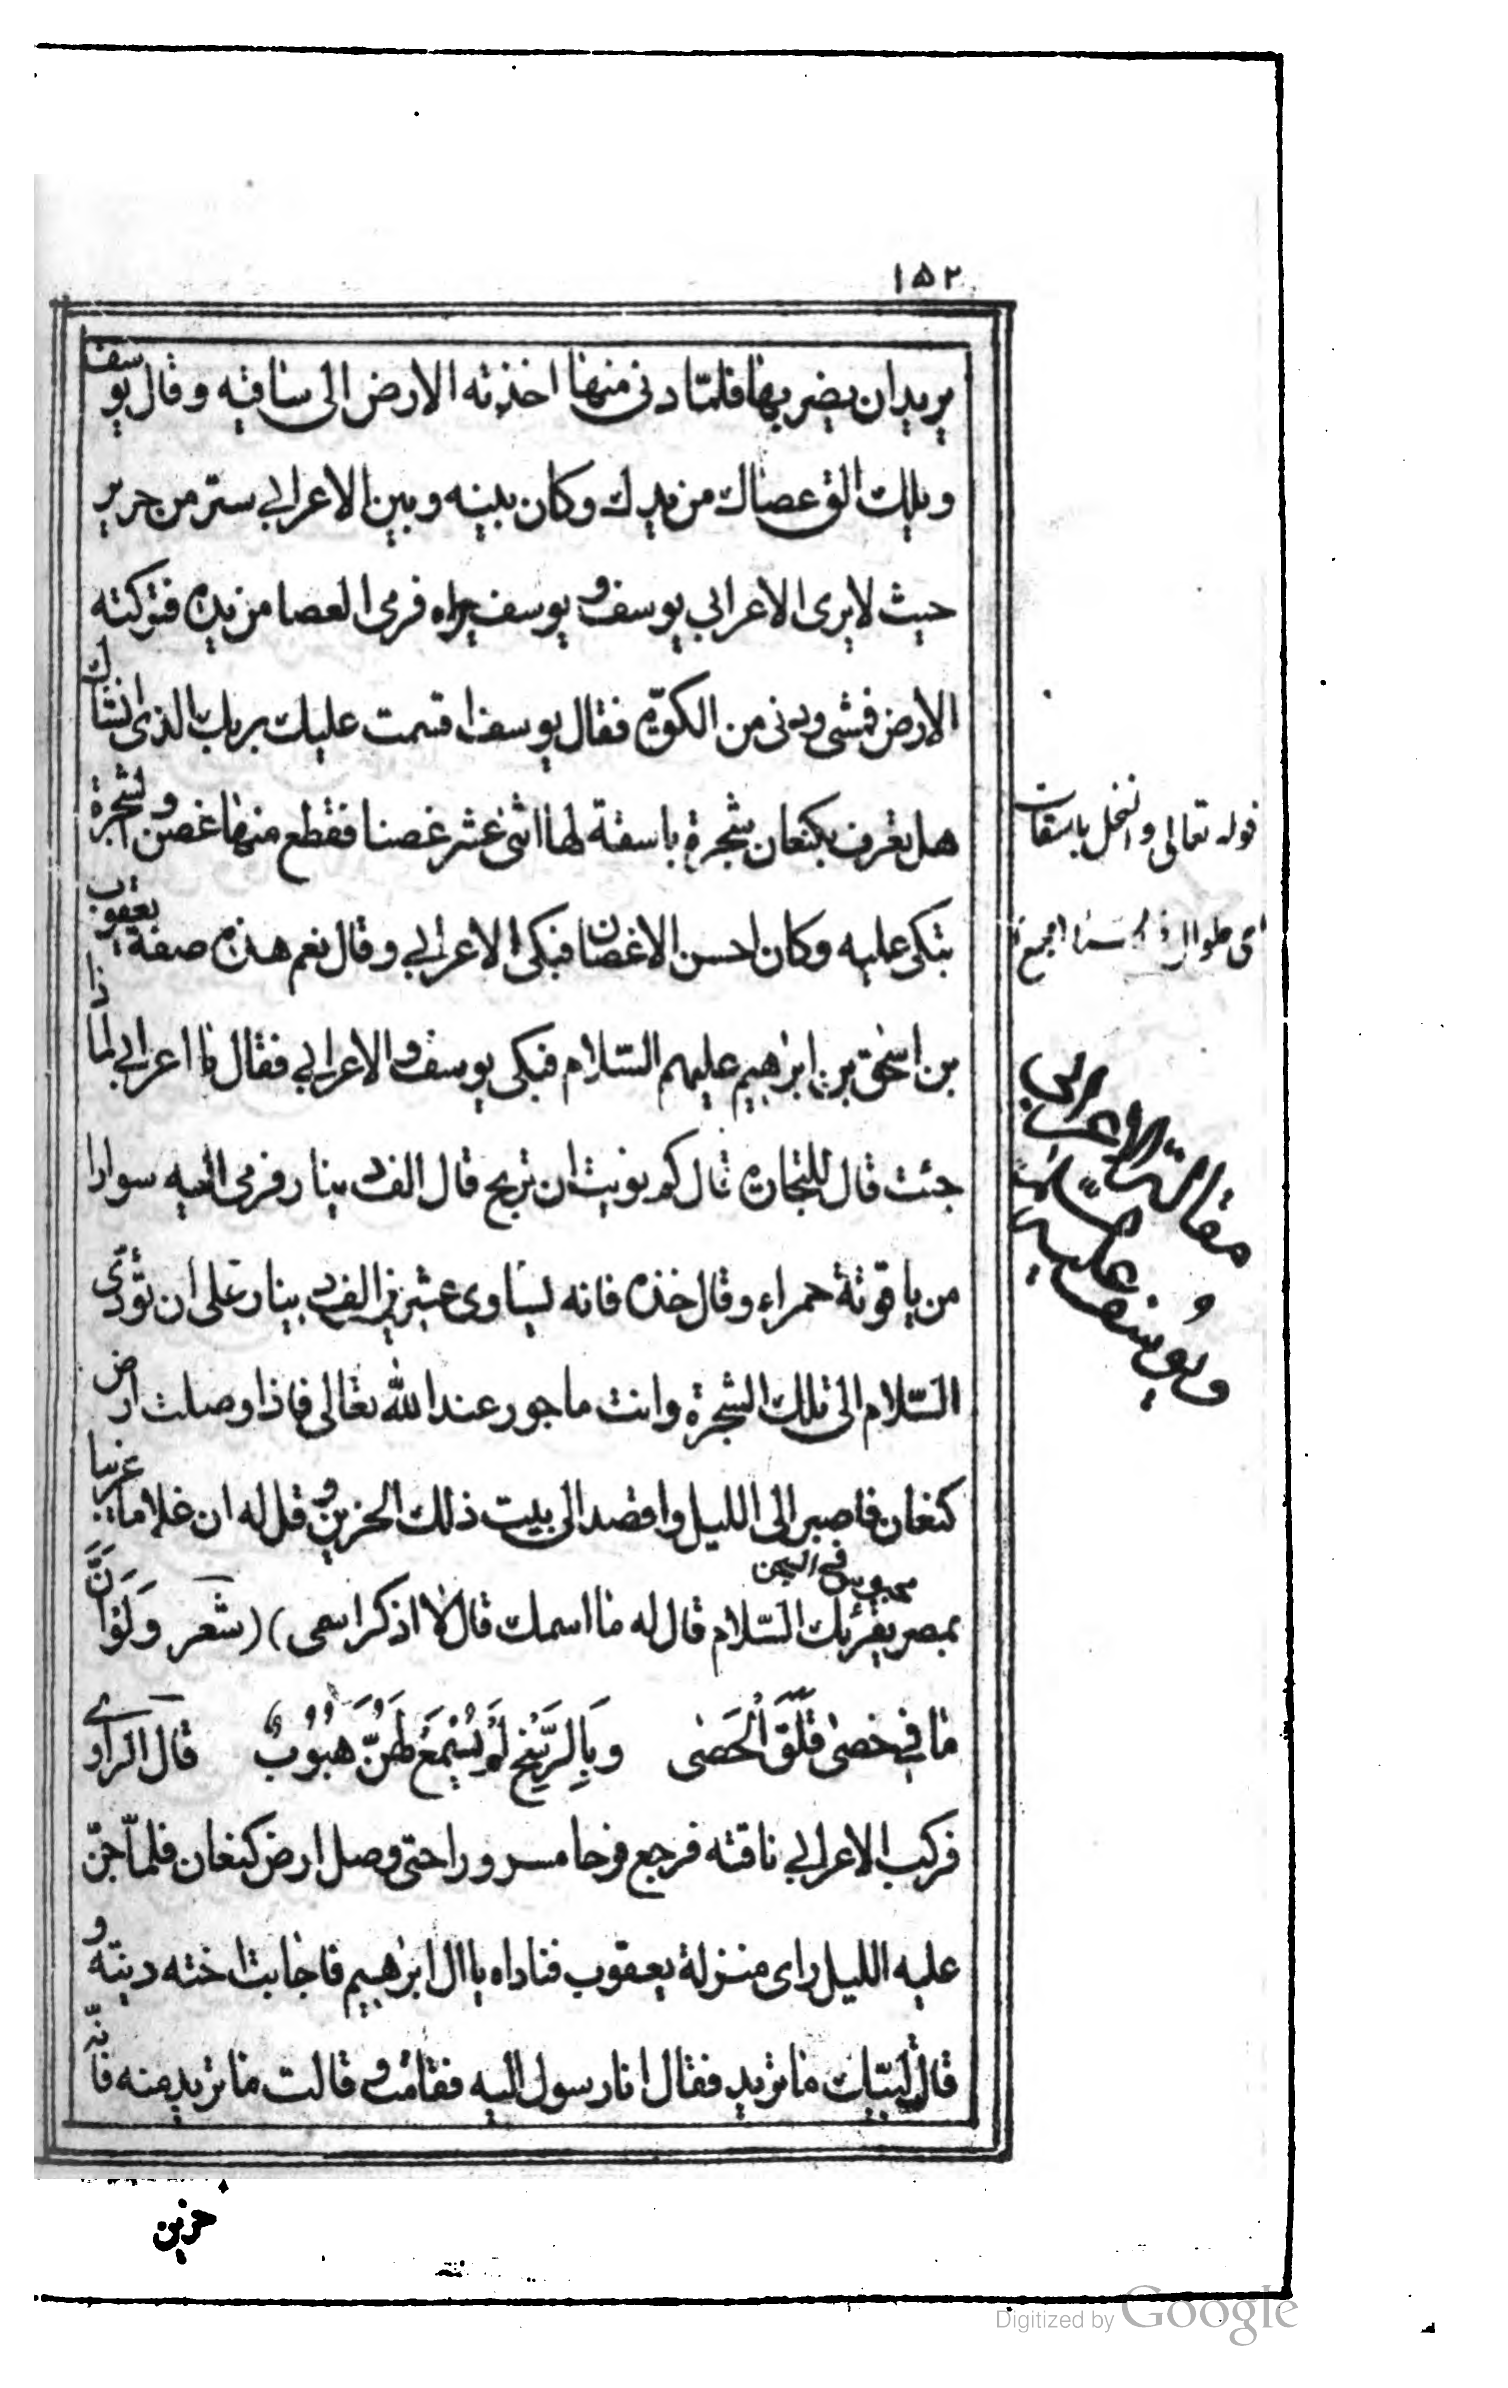 ١٥٢
يريد ان يضربها فلمّا دنى منها اخذته الارض الى ساقيه وقال يوسف
ويلك الق عصاك من يدك وكان بينه وبين الاعرابي ستر من حرير
حيث لا يرى الاعرابي يوسف ويوسف يراه فرمى العصا من يده فتركته
الارض فمشى ودنى من الكوّة فقال يوسف اقسمت عليك بربك الذى انشاك
هل تعرف بكنعان شجرة باسقة لها اثنى عشر غصنا فقطع منها غصن والشجرة
تبكى عليه وكان احسن الاغصان فبكى الاعرابي وقال نعم هذه صفة يعقوب
بن اسحٰق بن ابرٰهيم عليهم السّلام فبكى يوسف والاعرابي فقال يا اعرابي لماذا
جئت قال للتجارة قال كم نويت ان تربح قال الف دينار فرمى اليه سوارا
من ياقوتة حمراء وقال خذه فانه يساوى عشرين الف دينار على ان تؤدّى
السّلام الى تلك الشجرة وانت ماجور عند الله تعالى فاذا وصلت ارض
كنعان فاصبر الى الليل واقصد الى بيت ذلك الحزين وقل له ان غلاما غريبا
محبوس فى السجن
بمصر يقرئك السّلام قال له ما اسمك قال لا اذكر اسمى ) ( شعر وَلَوْ اَنَّ
مٰا فِي حَصىٰ فَلَقَ الْحَصىٰ وَبِالرِّيحِ لَمْ يُسْمَعْ لَهُنَّ هُبُوبٌ قال الراوى
فركب الاعرابي ناقته فرجع فرحا مسرورا حتى وصل ارض كنعان فلمّا جنّ
عليه الليل راى منزلة يعقوب فناداه يا ال ابرٰهيم فاجابت اخته دينة و
قالت لبّيك ما تريد فقال انا رسول اليه فقامت وقالت ما تريد منه فانّه
حزين
قوله تعالى والنخل باسقات
اى طوال
مقالة الاعرابى
ويوسف عليه السّلام
Digitized by Google